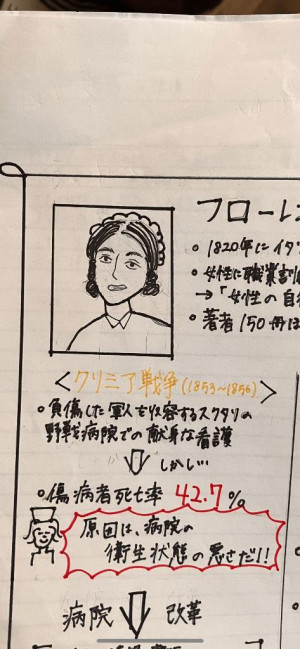 フローレ
○ 1820年にイタ
○ 女性に職業訓
→「女性の自
○ 著者150冊ほ
<クリミア戦争(1853~1856)>
○負傷した軍人を収容するスクタリの
野戦病院での献身な看護
⇩しかし…
○傷病者死亡率 42.7%
原因は、病院の
衛生状態の悪さだ!!
病院 ⇩ 改革